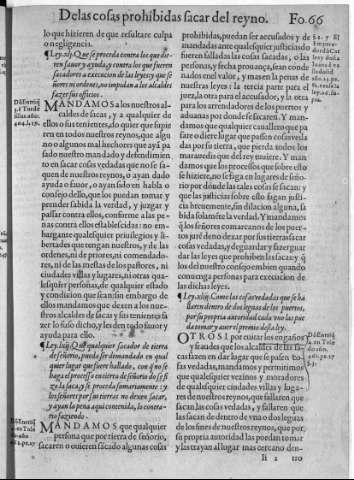 De las cosas prohibidas sacar del reyno. Fo. 66
lo que hizieren de que resultare culpa
o negligencia.
sacadores a execucion de las leyes y que se
fazer sus officios.
MANDAMOS a los nuestros al-
caldes de sacas, y a qualquier de
ellos o sus tenientes, do quier que supie
ren en todos nuestros reynos, que algu
no o algunos mal hechores que aya pa
sado nuestro mandado y defendimien
to en sacar cosas vedadas que no se sa-
quen de nuestros reynos, o ayan dado
ayuda o fauor, o ayan sido en habla o
consejo dello, que los puedan tomar y
prender sabida la verdad, y juzgar y
passar contra ellos, conforme a las pe-
nas contra ellos establecidas: no em-
bargante qualesquier priuilegios y li-
bertades que tengan nuestros, y de las
ordenes, ni de priores, ni comendado-
res, ni de las mestas de los pastores, ni
ciudades villas y lugares, ni otras qua-
lesquier personas, de qualquier estado
y condicion que sean: sin embargo de
ellos mandamos que dexen a los nue-
stros alcaldes de sacas y sus tenientes fa
zer lo suso dicho, y les den todo fauor y
ayuda para ello.
¶ Ley. liiij. Que qualquier sacador de tierra
de señorio, pueda ser demandado en qual
quier lugar que fuere hallado, con que no se
haga el processo en tierra de señorio do se fi
zo la saca, y se proceda sumariamente: y
los señores por sus tierras no dexen sacar,
y ayan la pena aqui contenida, lo contra-
rio faziendo.
MANDAMOS que qualquier
persona que por tierra de señorio,
sacaren o quieren sacado algunas cosas
prohibidas, puedan ser acusados y de
mandadas ante qualesquier justicias do
fueren falladas las cosas sacadas, o las
personas, y fecha pesquisa, sean conde-
nados en el valor, y mas en la pena de
nuestras leyes: la tercia parte para el
juez, la otra para el acusador, y la otra
para los arrendadores de los puertos y
aduanas por donde se sacaren. Y man-
damos que qualquier cauallero que pa
sare o diere lugar que passen cosas veda
das por su tierra, que pierda todos los
marauedis que del rey ouiere. Y man
damos que los processos que sobre esto
se hiziere, no se faga en lugares de seño-
rio por donde las tales cosas se sacan: y
que las justicias sobre esto fagan justi-
cia breuemente, sin dilacion alguna, sa
bida solamente la verdad. Y mandamos
q̃ los señores comarcanos de los puer-
tos jurẽ de no dexar por sus tierras sacar
cosas vedadas, y de guardar y fazer guar
dar las leyes que prohiben las sacas: y q̃
los del nuestro consejo embien quando
conuenga personas para execucion de
las dichas leyes.
llaren dentro de dos leguas de los puertos,
por su propria autoridad cada vno las pue
da tomar y auer el premio desta ley.
OTROSI por quitar los engaños
y fraudes que los alcaldes de las sa-
cas fazen en dar lugar que se passen co-
sas vedadas, mandamos y permitimos
que qualesquier vezinos y moradores
de qualesquier ciudades villas y luga-
res de nuestros reynos, que fallaren que
sacan las cosas vedadas, y fallaren que
las sacan de dentro de vna o dos leguas
de los fines de nuestros reynos, que por
su propria autoridad las puedan tomar
y las trayan al lugar mas cercano den-
Ii 2 tro